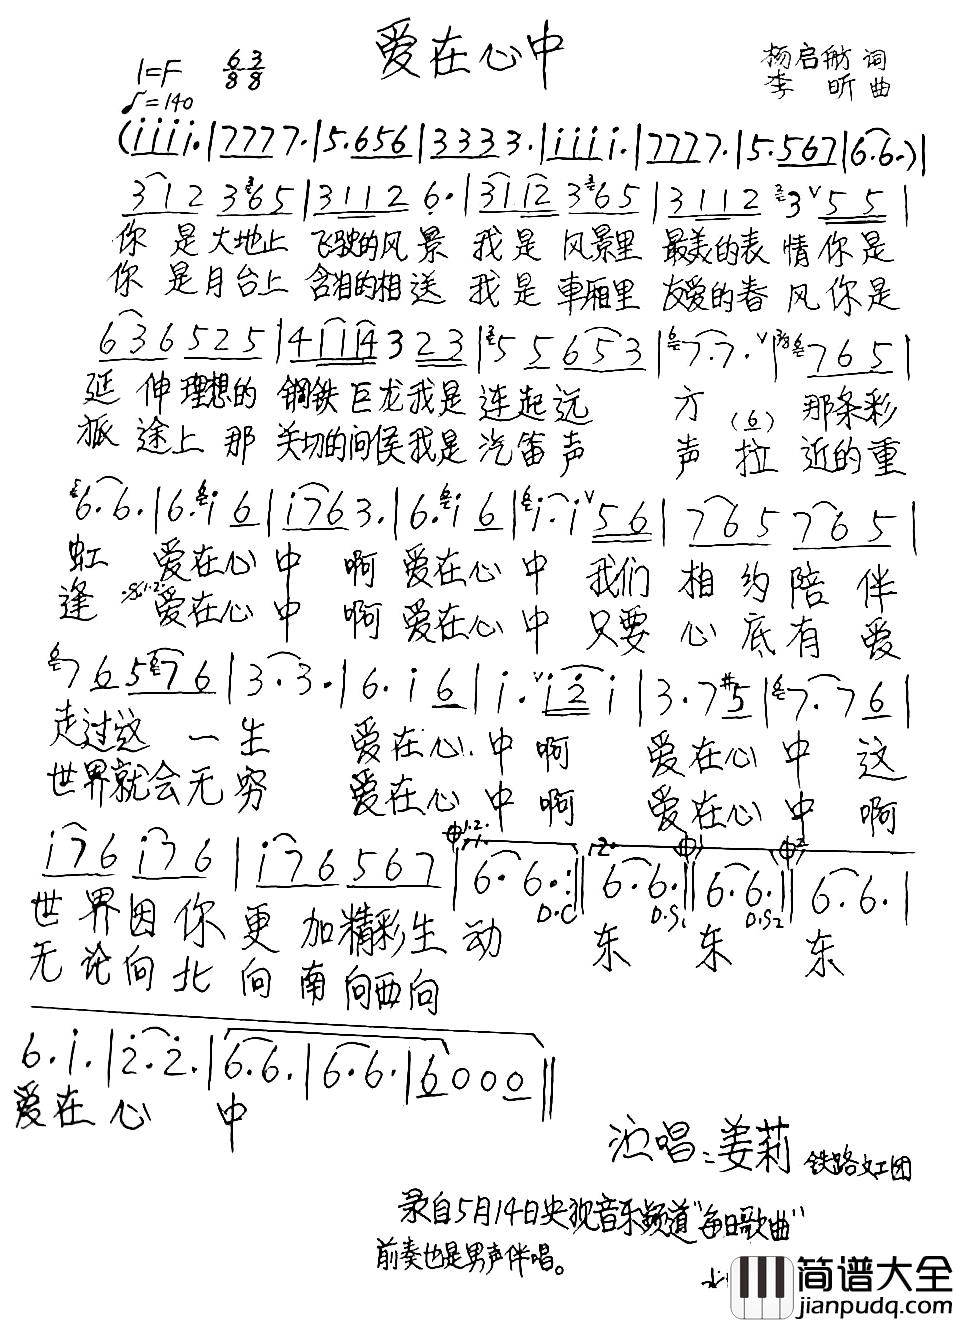 爱在心中
1=F 6/8 3/8
♪=140
杨启舫 词
李 昕 曲
(i i i i. | 7 7 7 7. | 5. 6 5 6 | 3 3 3 3. | i i i i. | 7 7 7 7. | 5. 5 6 7 | 6. 6. ) |
3 1 2 3 6 5 | 3 1 1 2 6. | 3 1 1 2 3 6 5 | 3 1 1 2 3 ∨ 5 5 |
你是大地上 飞驶的风景 我是风景里 最美的表情你是
你是月台上 含泪的相送 我是車厢里 友爱的春风你是
6 3 6 5 2 5 | 4 1 1 1 4 3 2 3 | 5 5 6 5 3 | 7. 7. ∨ | 7 6 5 |
延伸理想的 钢铁巨龙我是连起远方 那条彩
旅途上那 关切的问侯我是汽笛声声 (6) 拉近的重
6. 6. | 6. i 6 | i 7 6 3. | 6. i 6 | i. i ∨ 5 6 | 7 6 5 7 6 5 |
虹 爱在心中 啊 爱在心中 我们相约陪伴
逢 爱在心中 啊 爱在心中 只要心底有爱
7 6 5 7 6 | 3. 3. | 6. i 6 | i. ∨ i 2 i | 3. 7 #5 | 7. 7 6 |
走过这一生 爱在心中啊 爱在心中这
世界就会无穷 爱在心中啊 爱在心中啊
i 7 6 i 7 6 | i 7 6 5 6 7 | 6. 6. :|| 6. 6. || 6. 6. || 6. 6. |
D.C D.S1 D.S2
世界因你更加精彩生动 东 东 东
无论向北向南向西向
6. i. | 2. 2. | 6. 6. | 6. 6. | 6 0 0 0 ||
爱在心中
演唱:姜莉 铁路文工团
录自5月14日央视音乐频道"每日歌曲"
前奏也是男声伴唱。
简谱大全
jianpudq.com